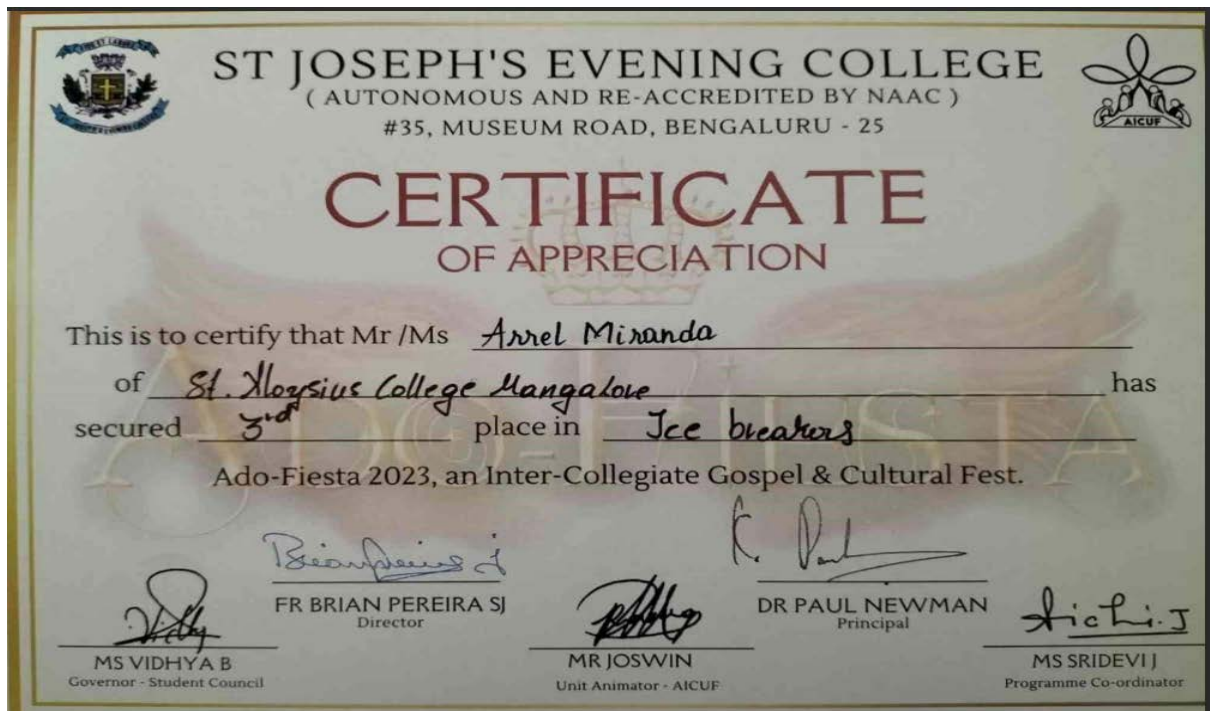 ST JOSEPH'S EVENING COLLEGE
( AUTONOMOUS AND RE-ACCREDITED BY NAAC )
#35, MUSEUM ROAD, BENGALURU - 25
AICUF
CERTIFICATE
OF APPRECIATION
This is to certify that Mr /Ms Arrel Miranda
of St. Aloysius College Mangalore has
secured 3rd place in Ice breakers
ADO-FIESTA
Ado-Fiesta 2023, an Inter-Collegiate Gospel & Cultural Fest.
FR BRIAN PEREIRA SJ
Director
DR PAUL NEWMAN
Principal
MS VIDHYA B
Governor - Student Council
MR JOSWIN
Unit Animator - AICUF
MS SRIDEVI J
Programme Co-ordinator